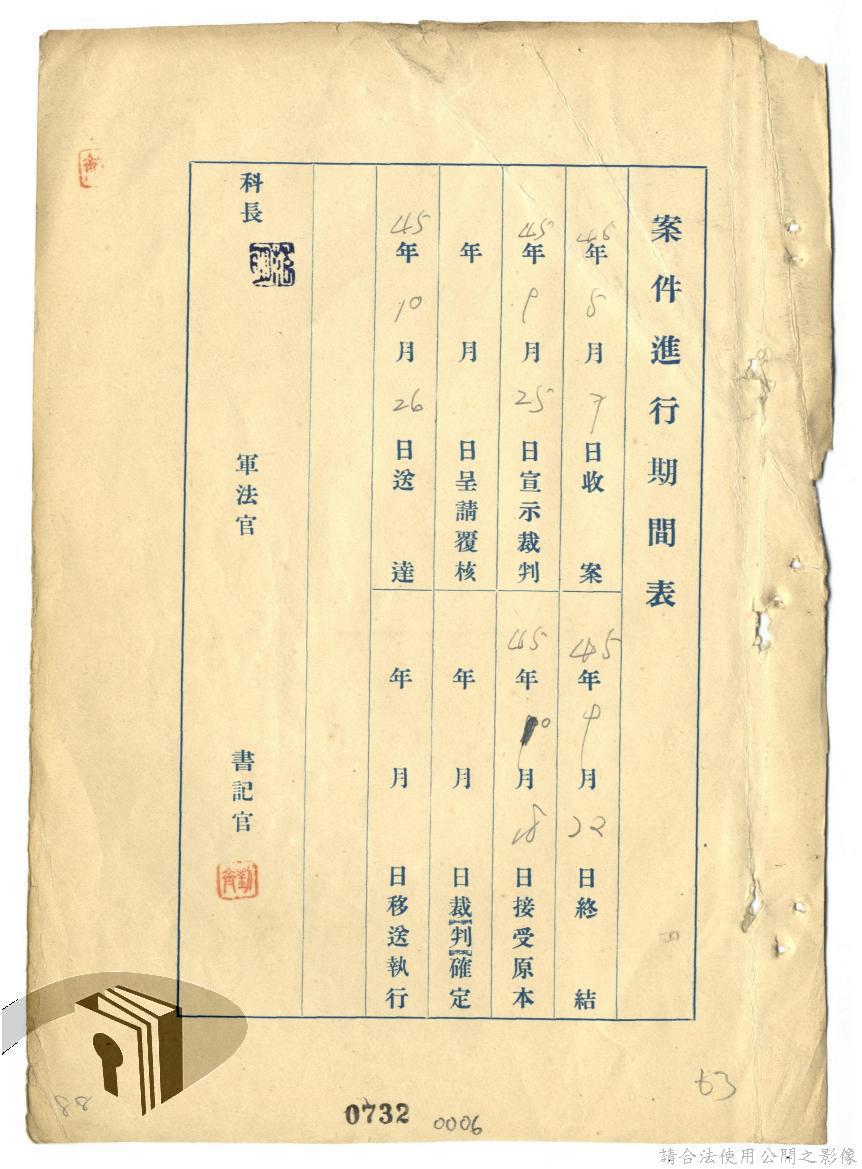 案件進行期間表
45年5月7日收案
45年9月22日終結
45年9月25日宣示裁判
45年10月18日接受原本
年月日呈請覆核
年月日裁判確定
45年10月26日送達
年月日移送執行
科長
軍法官
書記官
0732
0006
63
88
請合法使用公開之影像